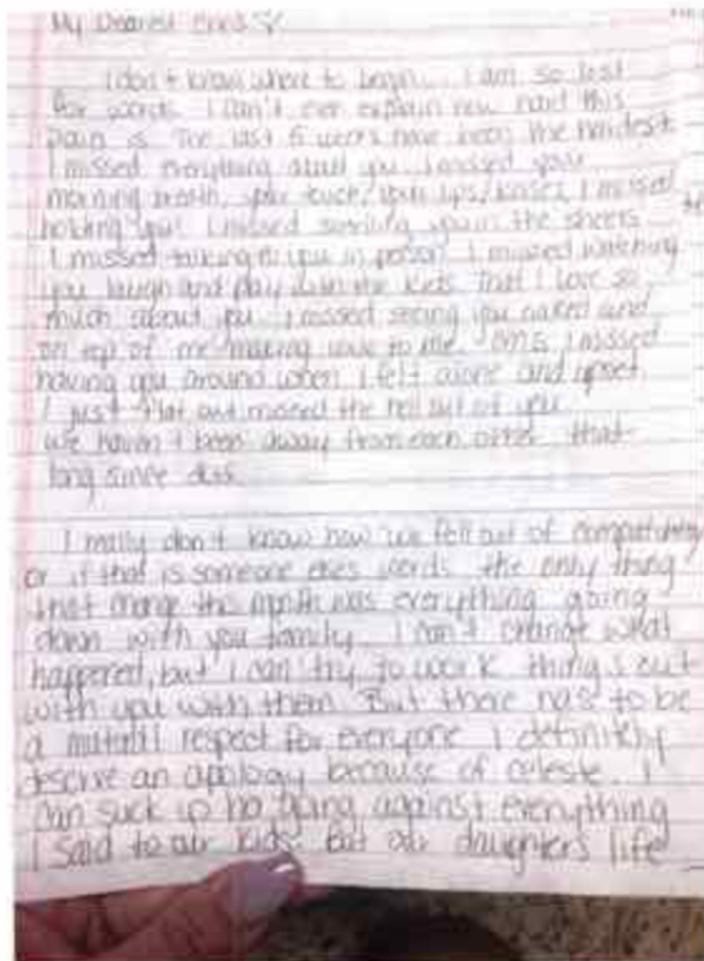 My Dearest
I don't know where to begin... I am so lost
for words. I can't ever explain how hard this
pain is. The last 6 weeks have been the hardest
I missed everything about you. I missed your
morning breath, your touch, your lips, kisses, I missed
holding you. I missed you in the sheets
I missed talking to you in person. I missed watching
you laugh and play with the kids that I love so
much about you. I missed seeing you naked and
on top of me making love to me. OMG I missed
having you around when I felt alone and upset.
I just flat out missed the hell out of you
we haven't been away from each other that
long since
I really don't know how we fell out of
or if that is someone elses words. the only thing
that change this month was everything going
down with you family. I can't change what
happened, but I can try to work things out
with you with them. But there has to be
a respect for everyone. I definitely
deserve an apology because of celeste. I
can suck up going against everything
I said to our kids. But our daughters life